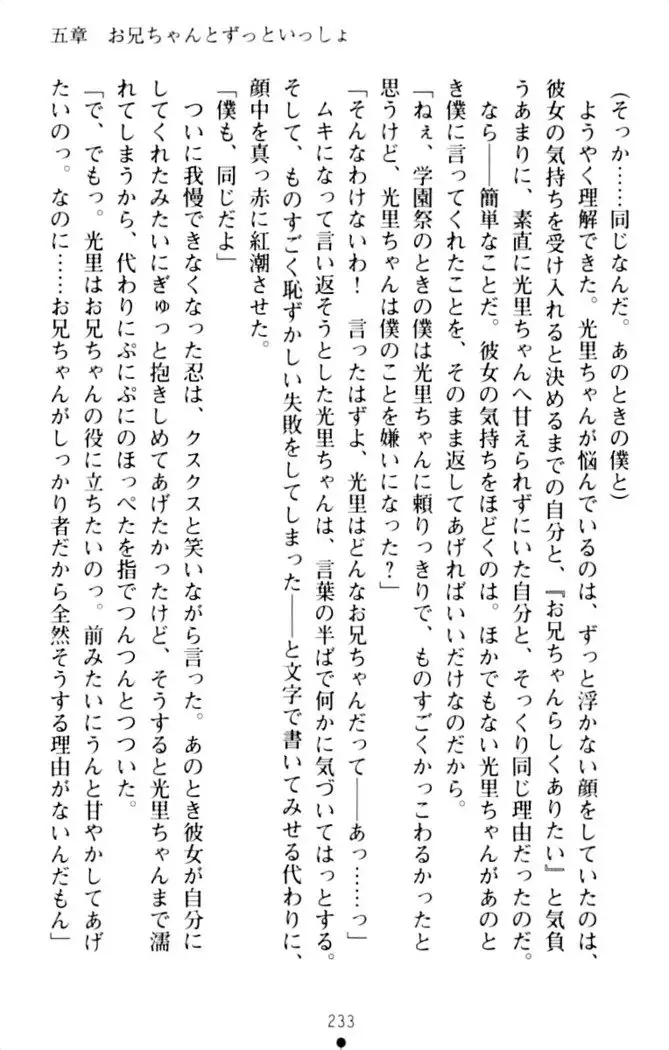 五章　お兄ちゃんとずっといっしょ
（そっか……同じなんだ。あのときの僕と）
　ようやく理解できた。光里ちゃんが悩んでいるのは、ずっと浮かない顔をしていたのは、
彼女の気持ちを受け入れると決めるまでの自分と、『お兄ちゃんらしくありたい』と気負
うあまりに、素直に光里ちゃんへ甘えられずにいた自分と、そっくり同じ理由だったのだ。
　なら――簡単なことだ。彼女の気持ちをほどくのは。ほかでもない光里ちゃんがあのと
き僕に言ってくれたことを、そのまま返してあげればいいだけなのだから。
「ねぇ、学園祭のときの僕は光里ちゃんに頼りっきりで、ものすごくかっこわるかったと
思うけど、光里ちゃんは僕のことを嫌いになった？」
「そんなわけないわ！　言ったはずよ、光里はどんなお兄ちゃんだって――あっ……っ」
　ムキになって言い返そうとした光里ちゃんは、言葉の半ばで何かに気づいてはっとする。
そして、ものすごく恥ずかしい失敗をしてしまった――と文字で書いてみせる代わりに、
顔中を真っ赤に紅潮させた。
「僕も、同じだよ」
　ついに我慢できなくなった忍は、クスクスと笑いながら言った。あのとき彼女が自分に
してくれたみたいにぎゅっと抱きしめてあげたかったけど、そうすると光里ちゃんまで濡
れてしまうから、代わりにぷにぷにのほっぺたを指でつんつんとつついた。
「で、でもっ。光里はお兄ちゃんの役に立ちたいのっ。前みたいにうんと甘やかしてあげ
たいのっ。なのに……お兄ちゃんがしっかり者だから全然そうする理由がないんだもん」
233